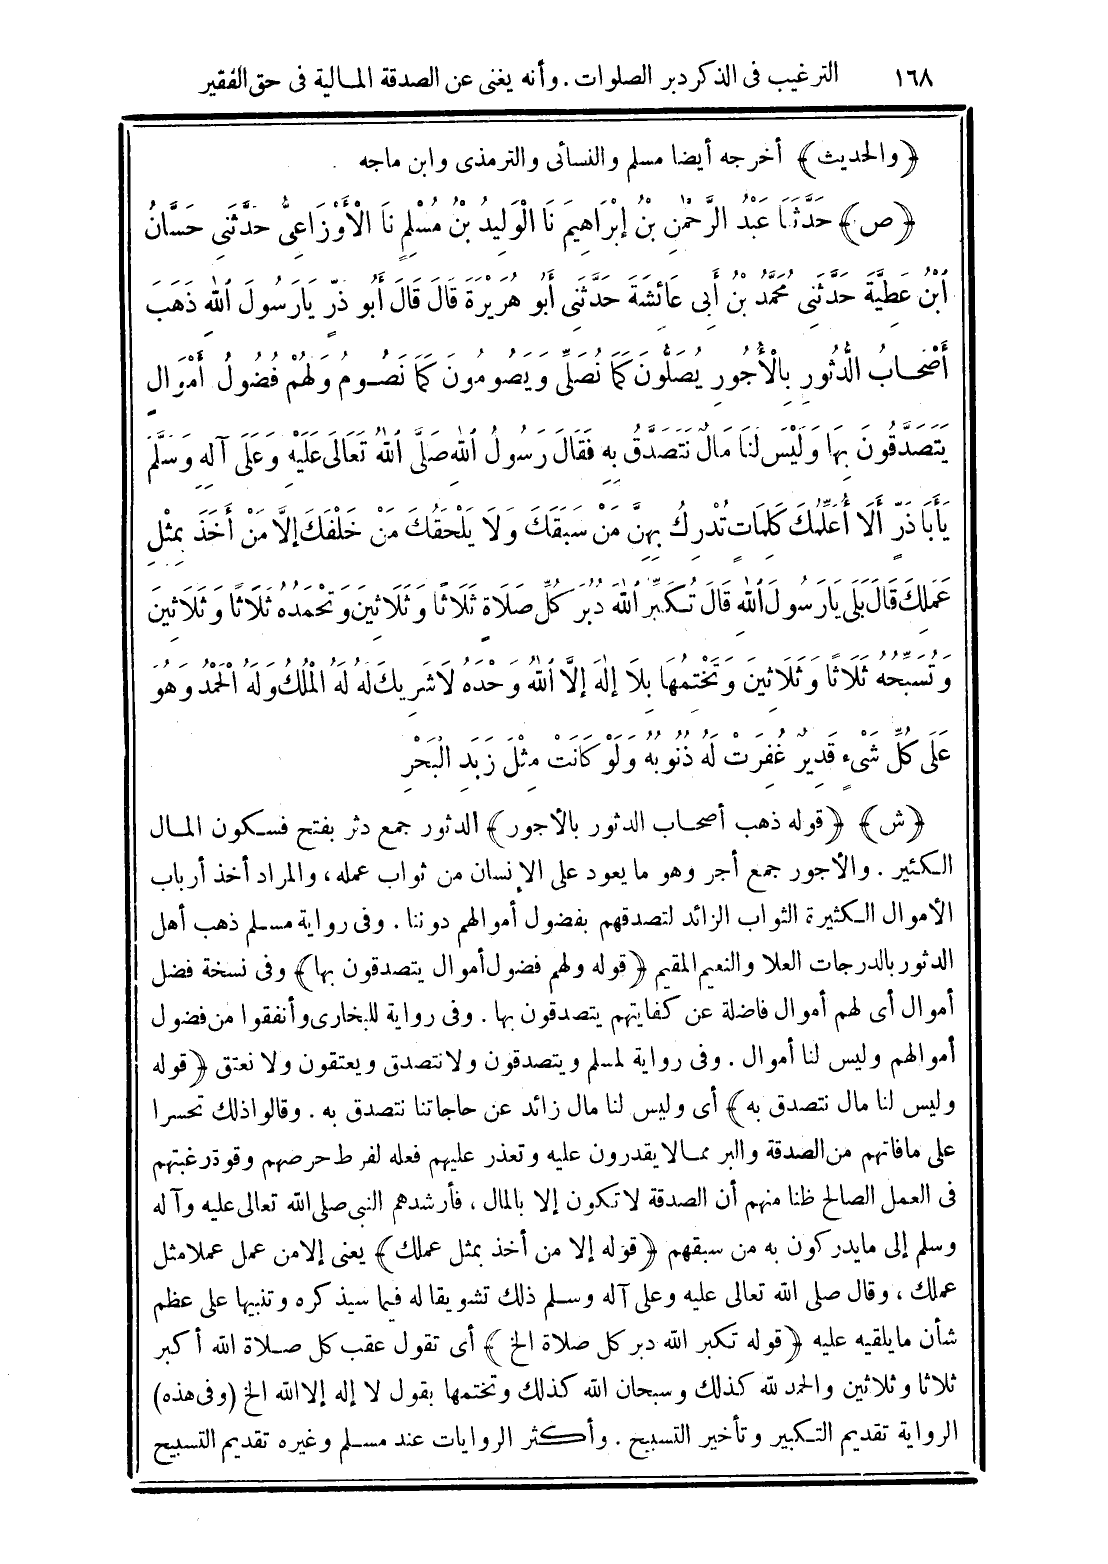 ١٦٨ الترغيب فى الذكر دبر الصلوات . وأنه يغنى عن الصدقة المالية فى حق الفقير
﴿والحديث﴾ أخرجه أيضا مسلم والنسائى والترمذى وابن ماجه .
﴿ص﴾ حَدَّثَنَا عَبْدُ الرَّحْمٰنِ بْنُ إِبْرَاهِيمَ نَا الْوَلِيدُ بْنُ مُسْلِمٍ نَا الْأَوْزَاعِىُّ حَدَّثَنِى حَسَّانُ
ابْنُ عَطِيَّةَ حَدَّثَنِى مُحَمَّدُ بْنُ أَبِى عَائِشَةَ حَدَّثَنِى أَبُو هُرَيْرَةَ قَالَ قَالَ أَبُو ذَرٍّ يَارَسُولَ اللهِ ذَهَبَ
أَصْحَابُ الدُّثُورِ بِالْأُجُورِ يُصَلُّونَ كَمَا نُصَلِّى وَيَصُومُونَ كَمَا نَصُومُ وَلَهُمْ فُضُولُ أَمْوَالٍ
يَتَصَدَّقُونَ بِهَا وَلَيْسَ لَنَا مَالٌ نَتَصَدَّقُ بِهِ فَقَالَ رَسُولُ اللهِ صَلَّى اللهُ تَعَالَى عَلَيْهِ وَعَلَى آلِهِ وَسَلَّمَ
يَاأَبَا ذَرٍّ أَلَا أُعَلِّمُكَ كَلِمَاتٍ تُدْرِكُ بِهِنَّ مَنْ سَبَقَكَ وَلَا يَلْحَقُكَ مَنْ خَلْفَكَ إِلَّا مَنْ أَخَذَ بِمِثْلِ
عَمَلِكَ قَالَ بَلَى يَارَسُولَ اللهِ قَالَ تُكَبِّرُ اللهَ دُبُرَ كُلِّ صَلَاةٍ ثَلَاثًا وَثَلَاثِينَ وَتَحْمَدُهُ ثَلَاثًا وَثَلَاثِينَ
وَتُسَبِّحُهُ ثَلَاثًا وَثَلَاثِينَ وَتَخْتِمُهَا بِلَا إِلٰهَ إِلَّا اللهُ وَحْدَهُ لَاشَرِيكَ لَهُ لَهُ الْمُلْكُ وَلَهُ الْحَمْدُ وَهُوَ
عَلَى كُلِّ شَىْءٍ قَدِيرٌ غُفِرَتْ لَهُ ذُنُوبُهُ وَلَوْ كَانَتْ مِثْلَ زَبَدِ الْبَحْرِ
﴿ش﴾ ﴿قوله ذهب أصحاب الدثور بالأجور﴾ الدثور جمع دثر بفتح فسكون المال
الكثير . والأجور جمع أجر وهو مايعود على الإنسان من ثواب عمله ، والمراد أخذ أرباب
الأموال الكثيرة الثواب الزائد لتصدقهم بفضول أموالهم دوننا . وفى رواية مسلم ذهب أهل
الدثور بالدرجات العلا والنعيم المقيم ﴿قوله ولهم فضول أموال يتصدقون بها﴾ وفى نسخة فضل
أموال أى لهم أموال فاضلة عن كفايتهم يتصدقون بها . وفى رواية للبخارى وأنفقوا من فضول
أموالهم وليس لنا أموال . وفى رواية لمسلم ويتصدقون ولانتصدق ويعتقون ولا نعتق ﴿قوله
وليس لنا مال نتصدق به﴾ أى وليس لنا مال زائد عن حاجاتنا نتصدق به . وقالوا ذلك تحسرا
على مافاتهم من الصدقة والبر ممالايقدرون عليه وتعذر عليهم فعله لفرط حرصهم وقوة رغبتهم
فى العمل الصالح ظنا منهم أن الصدقة لاتكون إلا بالمال ، فأرشدهم النبى صلى الله تعالى عليه وآله
وسلم إلى مايدركون به من سبقهم ﴿قوله إلا من أخذ بمثل عملك﴾ يعنى إلامن عمل عملامثل
عملك ، وقال صلى الله تعالى عليه وعلى آله وسلم ذلك تشويقا له فيما سيذكره وتنبيها على عظم
شأن مايلقيه عليه ﴿قوله تكبر الله دبر كل صلاة الخ﴾ أى تقول عقب كل صلاة الله أكبر
ثلاثا وثلاثين والحمد لله كذلك وسبحان الله كذلك وتختمها بقول لا إله إلاالله الخ (وفى هذه)
الرواية تقديم التكبير وتأخير التسبيح . وأكثر الروايات عند مسلم وغيره تقديم التسبيح